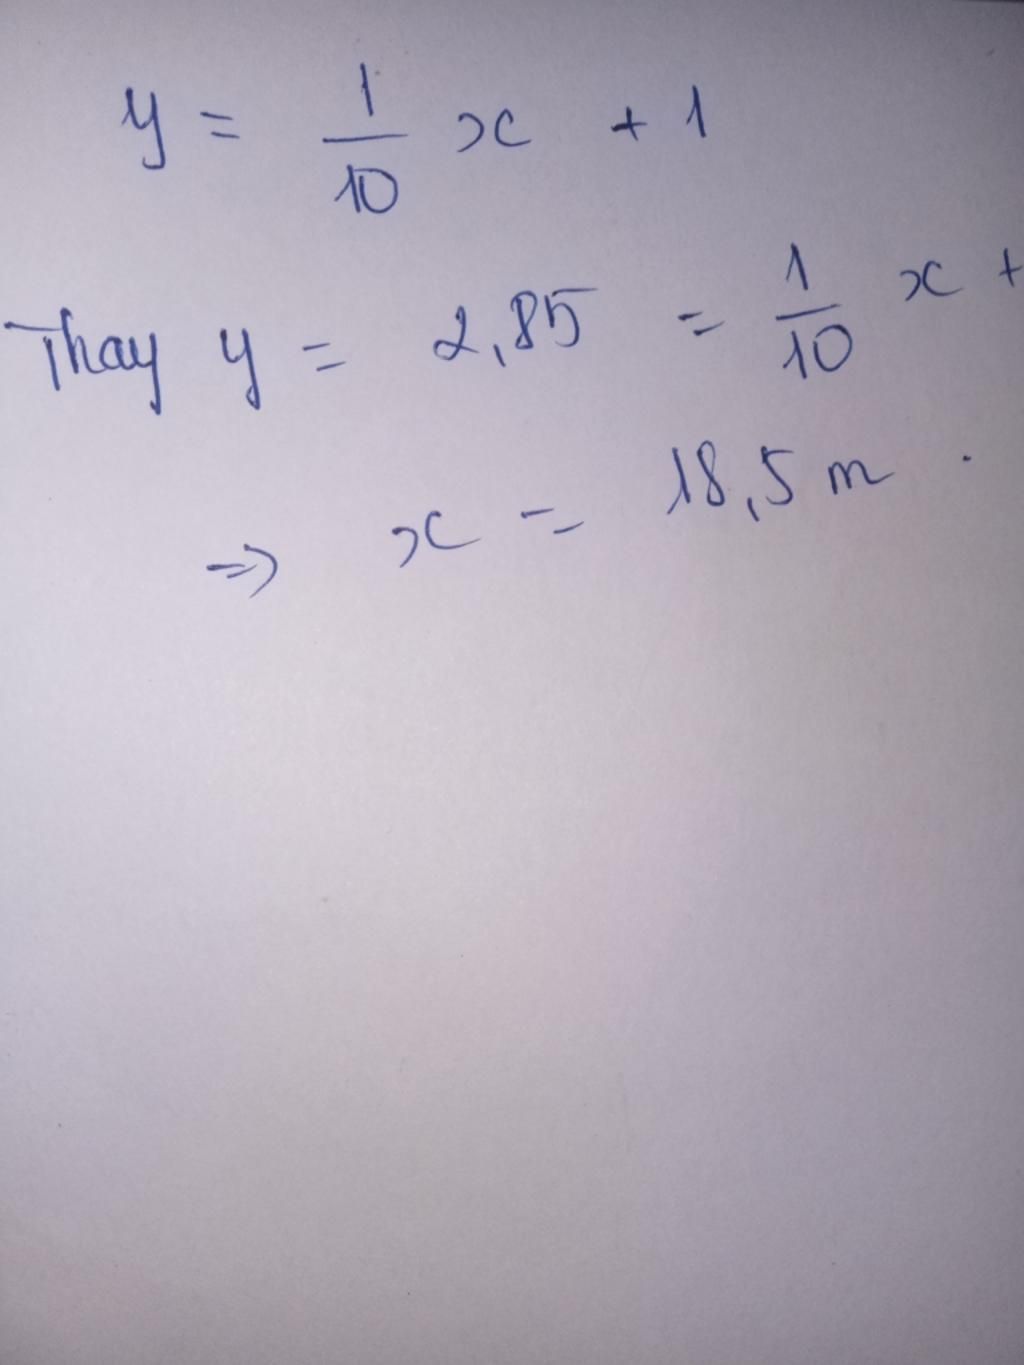 y = 1/10 x + 1
Thay y = 2,85 = 1/10 x +
=> x = 18,5 m.